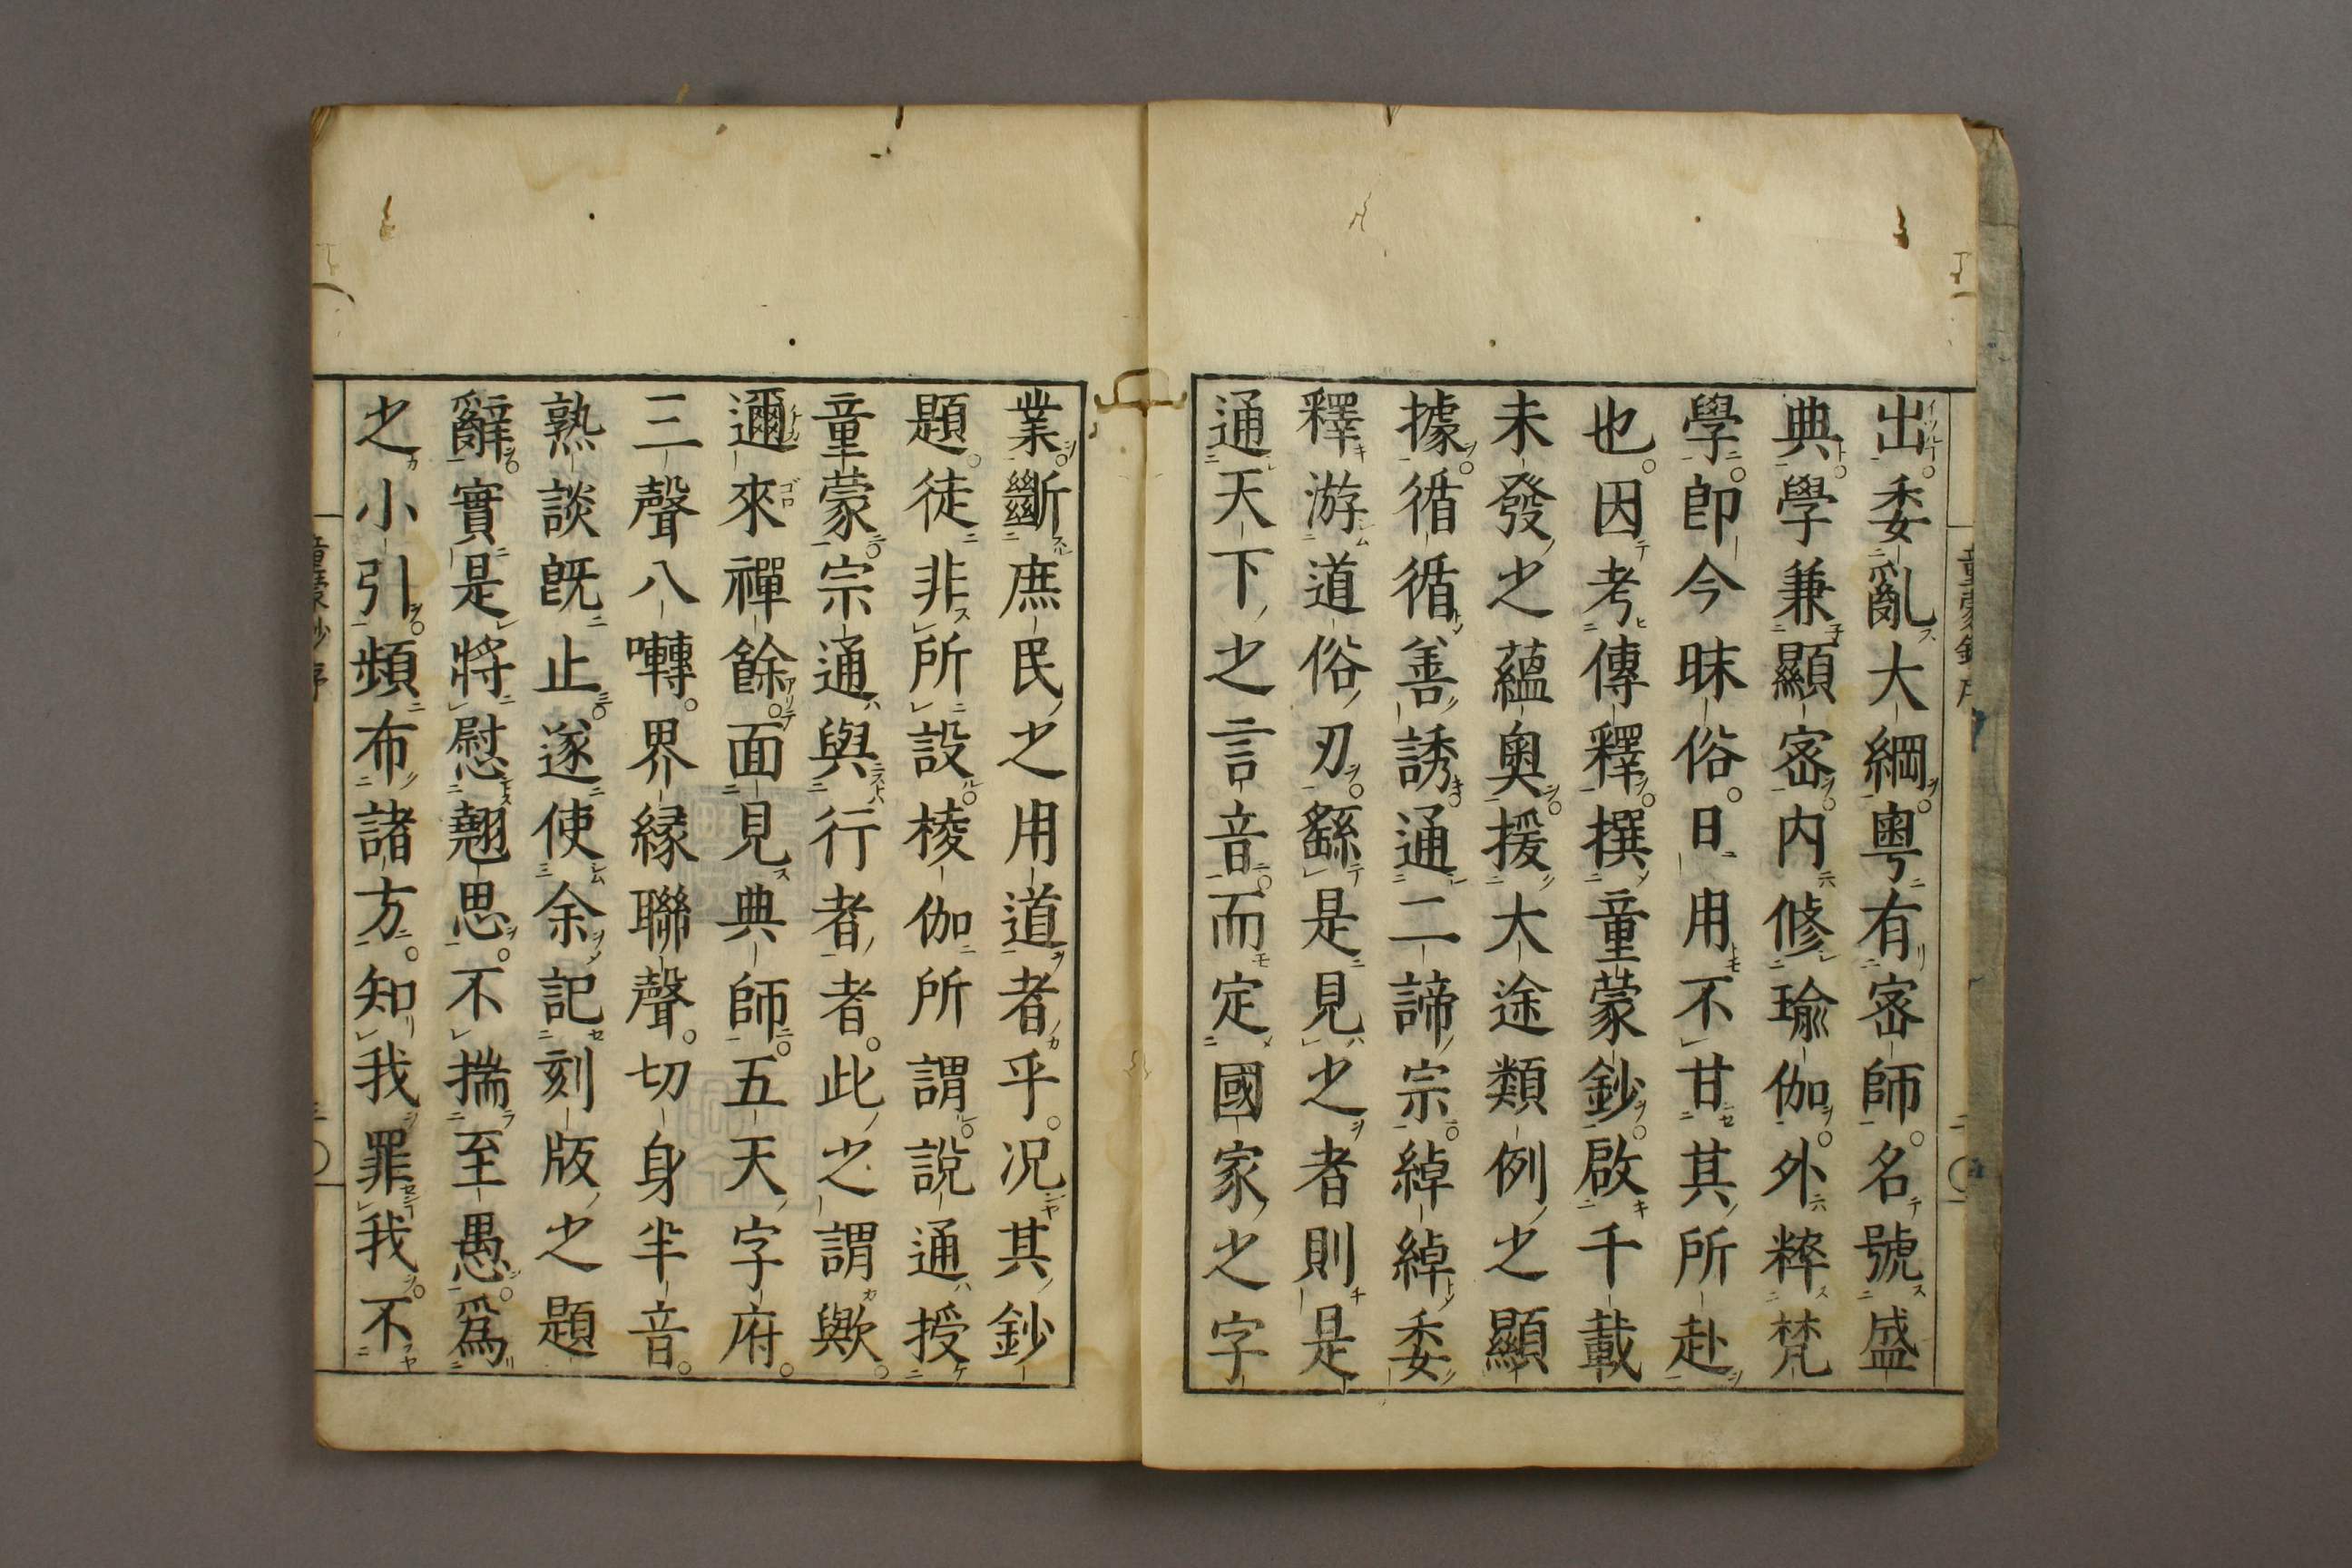 出委亂大綱粤有宻師名號盛
典學兼顯宻内修瑜伽外粹梵
學即今昧俗日用不甘其所赴
也因考傳釋撰童蒙鈔啟千載
未發之蘊奥援大途類例之顯
據循循善誘通二諦宗綽綽委
釋游道俗刃繇是見之者則是
通天下之言音而定國家之字
業斷庶民之用道者乎况其鈔
題徒非所設棱伽所謂說通授
童蒙宗通與行者者此之謂歟
邇來禪餘面見典師五天字府
三聲八囀界縁聯聲切身半音
熟談既止遂使余記刻版之題
辭實是將慰翹思不揣至愚爲
之小引頻布諸方知我罪我不